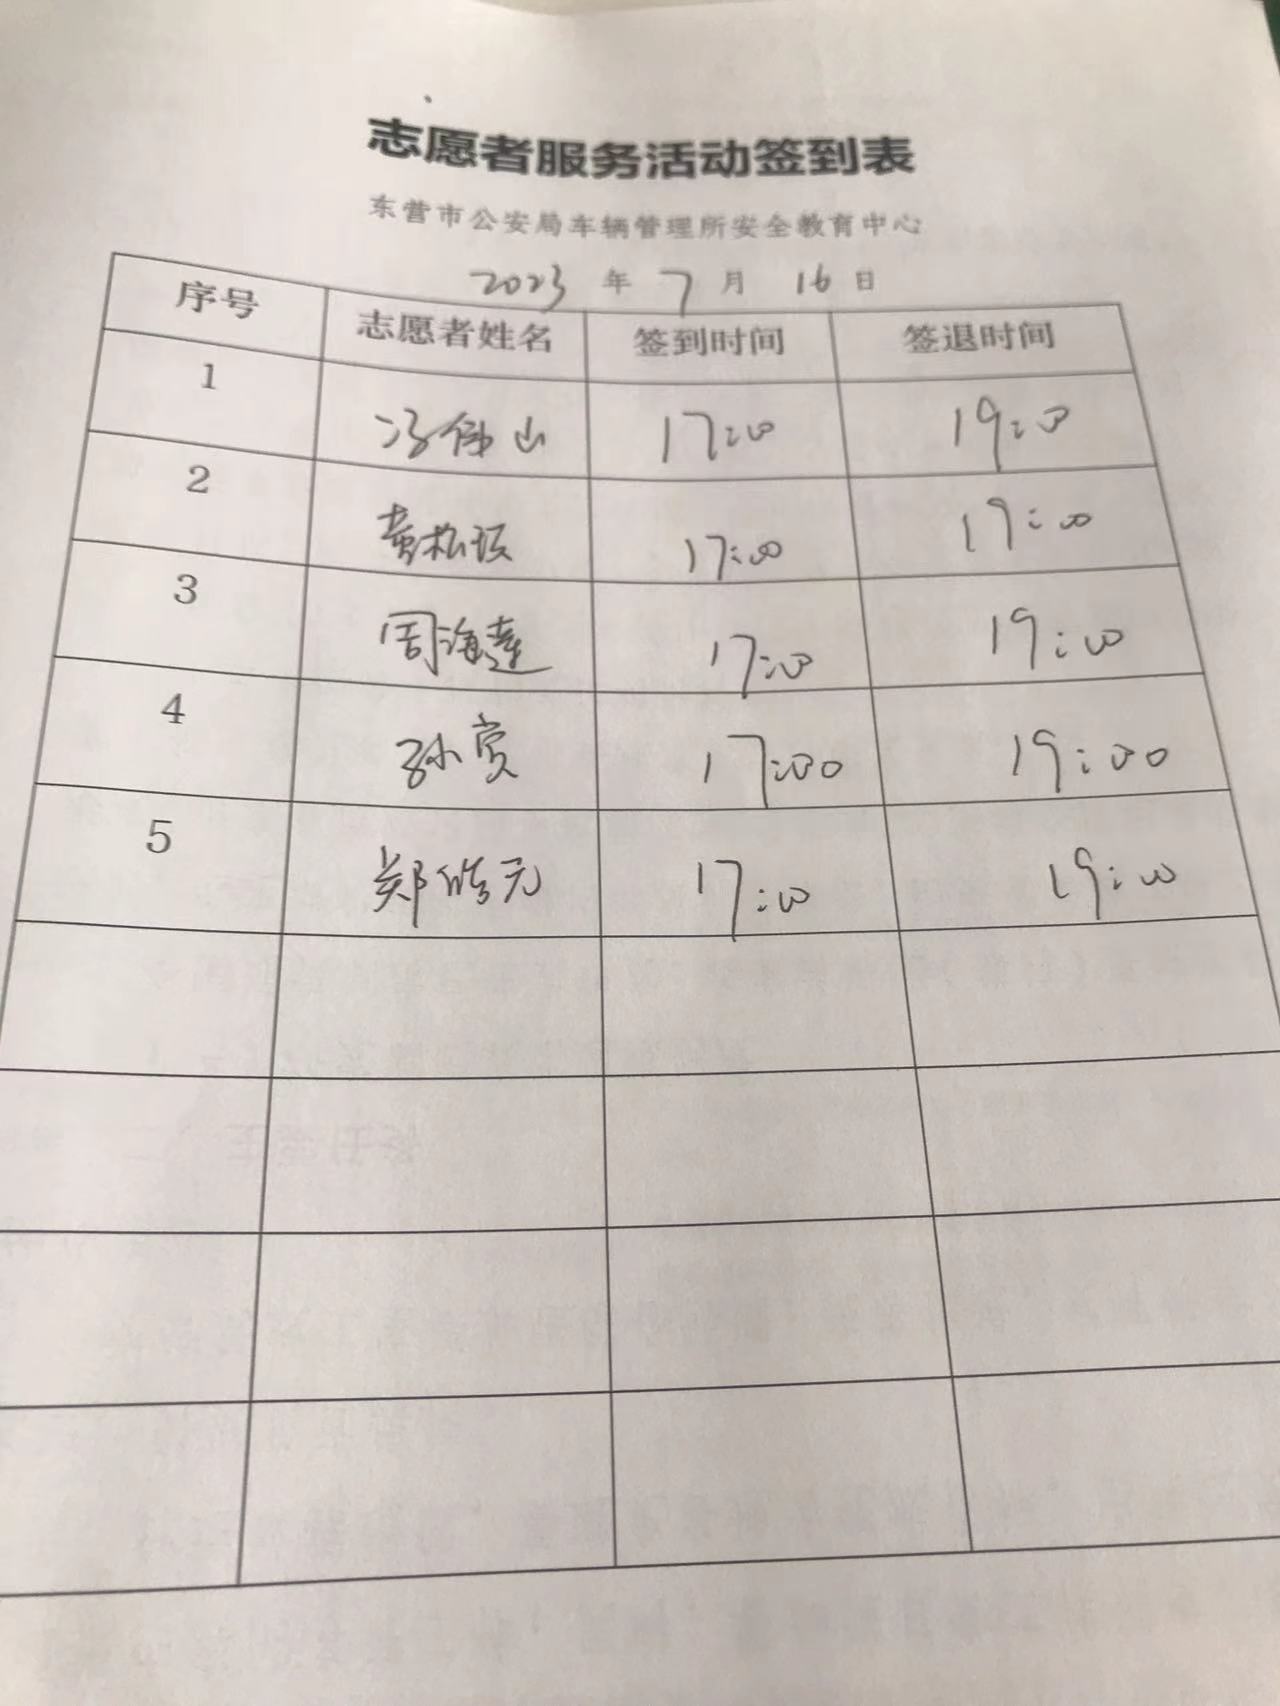 志愿者服务活动签到表
东营市公安局车辆管理所安全教育中心
2023 年 7 月 16 日
序号 志愿者姓名 签到时间 签退时间
1 冯伟山 17:00 19:00
2 黄松 17:00 19:00
3 周海莲 17:00 19:00
4 孙赏 17:00 19:00
5 郑皓元 17:00 19:00